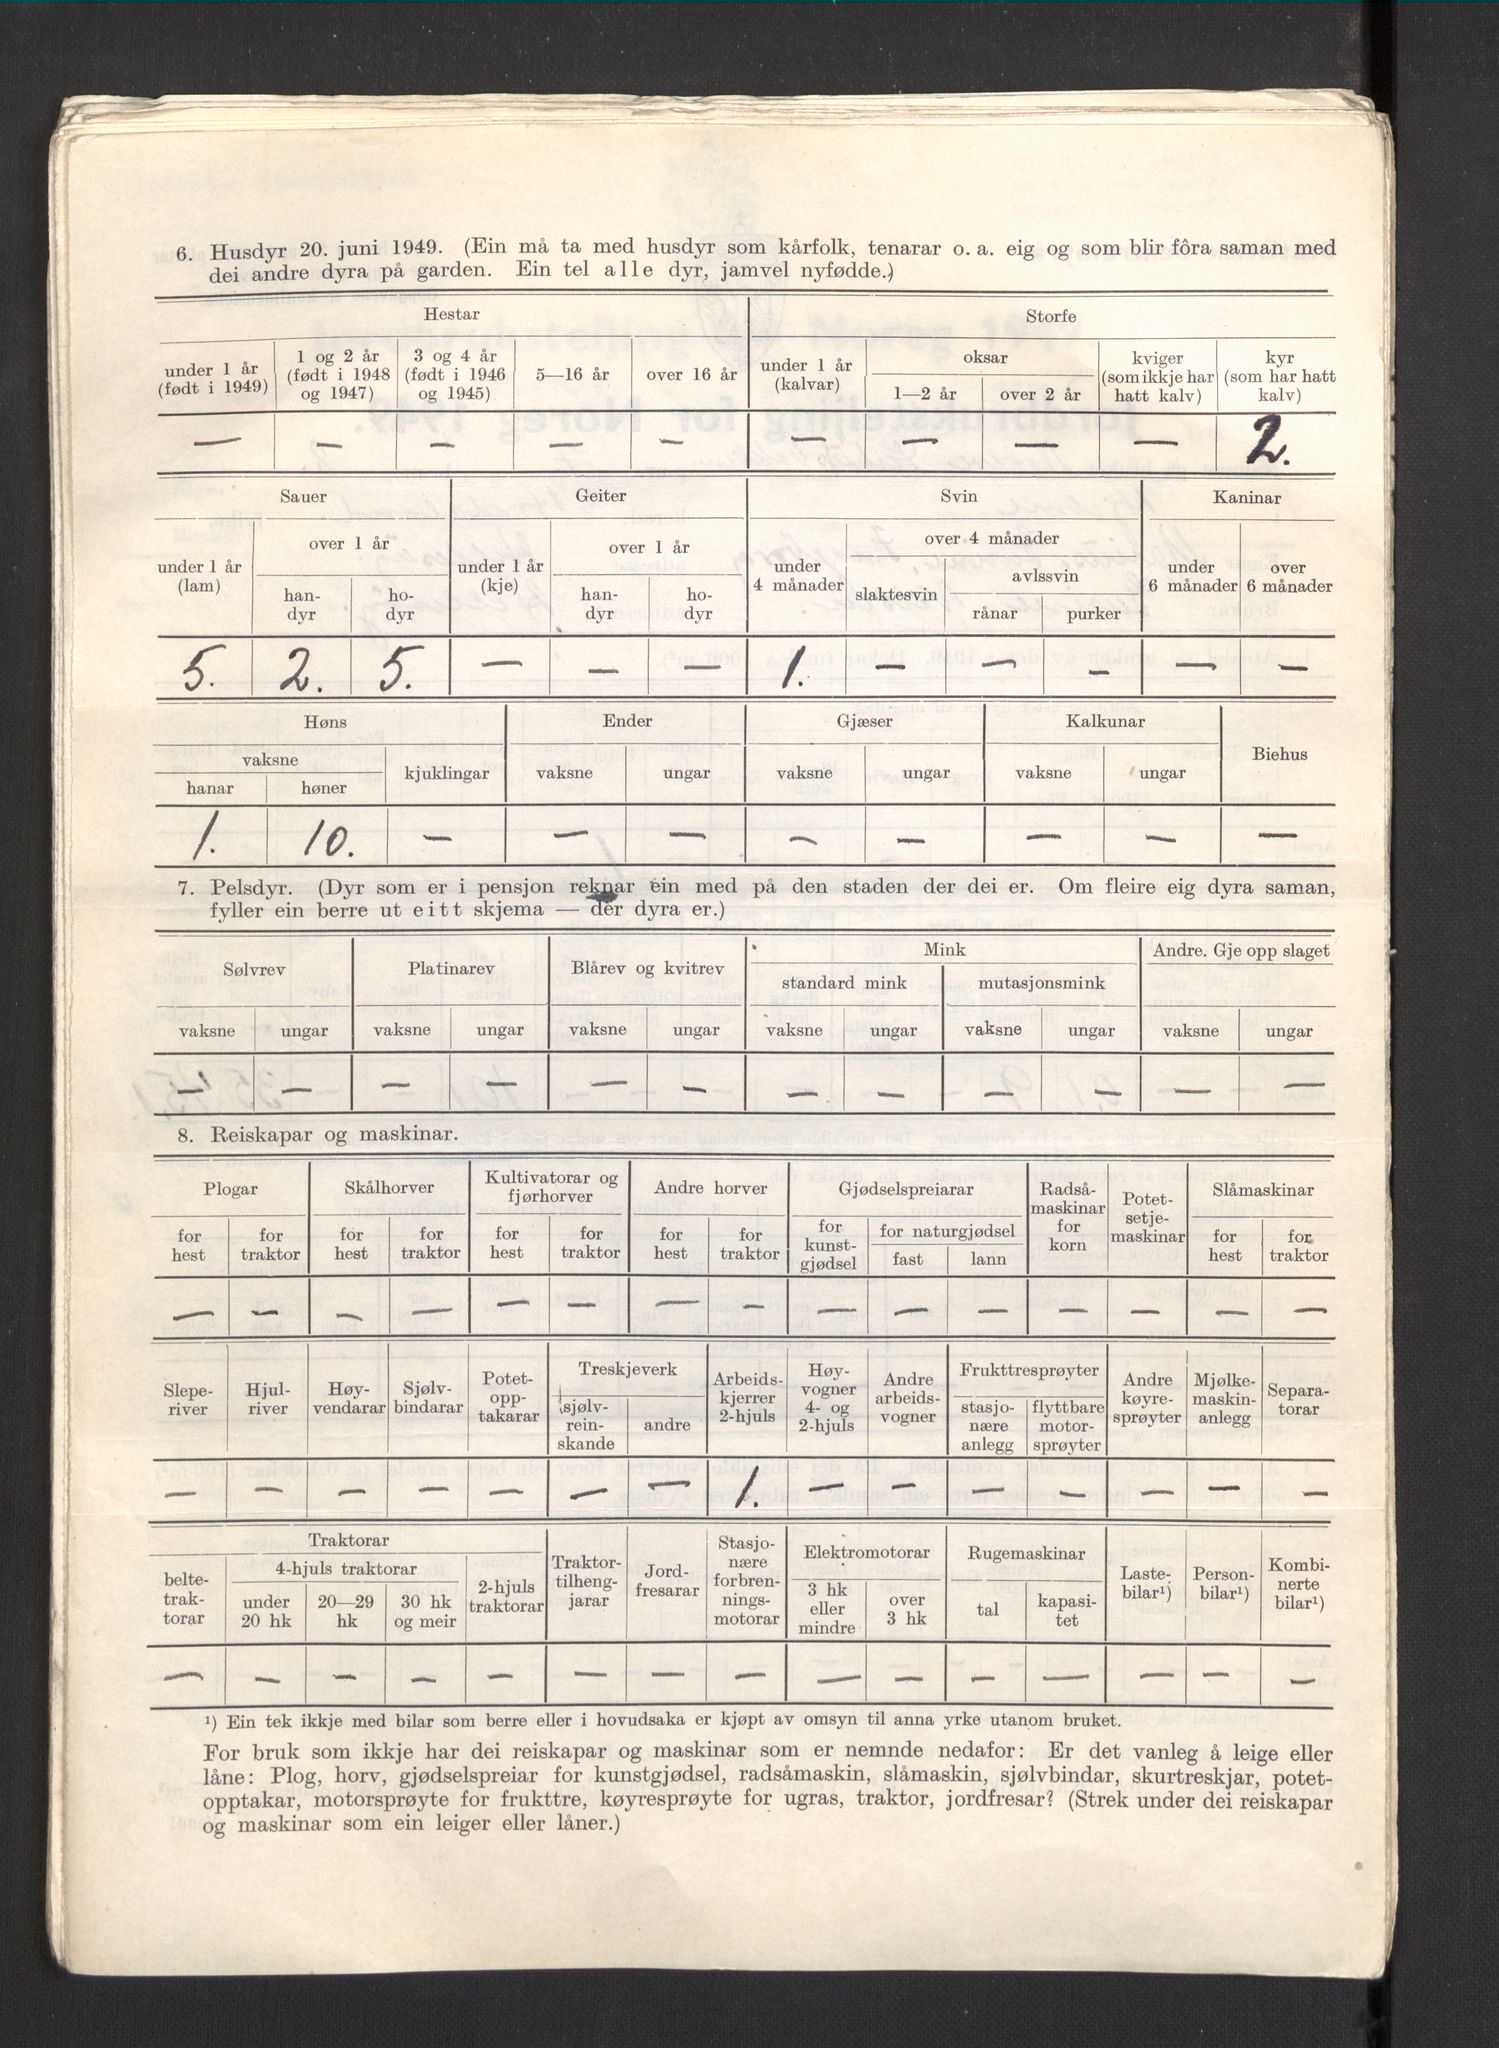 6. Husdyr 20. juni 1949. (Ein må ta med husdyr som kårfolk, tenarar o. a. eig og som blir fôra saman med
dei andre dyra på garden. Ein tel alle dyr, jamvel nyfødde.)
Hestar Storfe
under 1 år (født i 1949) 1 og 2 år (født i 1948 og 1947) 3 og 4 år (født i 1946 og 1945) 5—16 år over 16 år under 1 år (kalvar) oksar 1—2 år over 2 år kviger (som ikkje har hatt kalv) kyr (som har hatt kalv)
— — — — — — — — — 2.
Sauer Geiter Svin Kaninar
under 1 år (lam) over 1 år han-dyr ho-dyr under 1 år (kje) over 1 år han-dyr ho-dyr under 4 månader over 4 månader slaktesvin avlssvin rånar purker under 6 månader over 6 månader
5. 2. 5. — — — 1. — — — — —
Høns Ender Gjæser Kalkunar Biehus
vaksne hanar høner kjuklingar vaksne ungar vaksne ungar vaksne ungar
1. 10. — — — — — — — —
7. Pelsdyr. (Dyr som er i pensjon reknar ein med på den staden der dei er. Om fleire eig dyra saman,
fyller ein berre ut eitt skjema — der dyra er.)
Sølvrev Platinarev Blårev og kvitrev Mink Andre. Gje opp slaget
standard mink mutasjonsmink
vaksne ungar vaksne ungar vaksne ungar vaksne ungar vaksne ungar vaksne ungar
— — — — — — — — — — — —
8. Reiskapar og maskinar.
Plogar Skålhorver Kultivatorar og fjørhorver Andre horver Gjødselspreiarar Radså-maskinar for korn Potet-setje-maskinar Slåmaskinar
for hest for traktor for hest for traktor for hest for traktor for hest for traktor for kunst-gjødsel for naturgjødsel fast lann for hest for traktor
— — — — — — — — — — — — — — —
Slepe-river Hjul-river Høy-vendarar Sjølv-bindarar Potet-opp-takarar Treskjeverk sjølv-rein-skande andre Arbeids-kjerrer 2-hjuls Høy-vogner 4- og 2-hjuls Andre arbeids-vogner Frukttresprøyter stasjo-nære anlegg flyttbare motor-sprøyter Andre køyre-sprøyter Mjølke-maskin-anlegg Separa-torar
— — — — — — — 1. — — — — — — —
Traktorar
belte-trak-torar 4-hjuls traktorar under 20 hk 20—29 hk 30 hk og meir 2-hjuls traktorar Traktor-tilheng-jarar Jord-fresarar Stasjo-nære forbren-nings-motorar Elektromotorar 3 hk eller mindre over 3 hk Rugemaskinar tal kapasi-tet Laste-bilar¹) Person-bilar¹) Kombi-nerte bilar¹)
— — — — — — — — — — — — — — —
¹) Ein tek ikkje med bilar som berre eller i hovudsaka er kjøpt av omsyn til anna yrke utanom bruket.
For bruk som ikkje har dei reiskapar og maskinar som er nemnde nedafor: Er det vanleg å leige eller
låne: Plog, horv, gjødselspreiar for kunstgjødsel, radsåmaskin, slåmaskin, sjølvbindar, skurtreskjar, potet-
opptakar, motorsprøyte for frukttre, køyresprøyte for ugras, traktor, jordfresar? (Strek under dei reiskapar
og maskinar som ein leiger eller låner.)